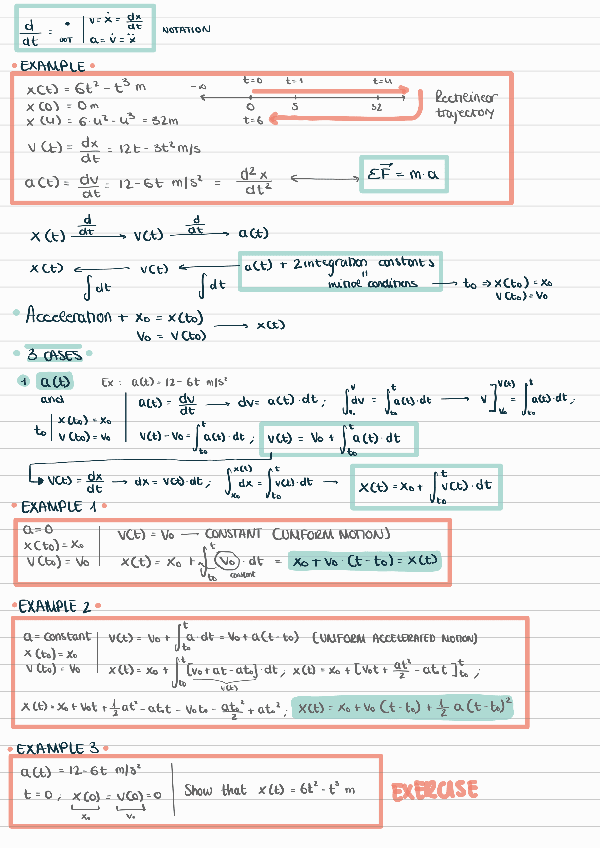 d/dt = • DOT | v = ẋ = dx/dt
a = v̇ = ẍ
NOTATION
• EXAMPLE
x(t) = 6t² - t³ m
x(0) = 0 m
x(4) = 6·4² - 4³ = 32m
v(t) = dx/dt = 12t - 3t² m/s
a(t) = dv/dt = 12 - 6t m/s² = d²x/dt² ⟷ ΣF⃗ = m·a
t=0 t=1 t=4
-∞ 0 5 32
t=6
Rectilinear
trajectory
x(t) —d/dt→ v(t) —d/dt→ a(t)
x(t) ← v(t) ← a(t) + 2 integration constants
∫dt ∫dt = initial conditions → t₀ ⇒ x(t₀) = x₀
v(t₀) = v₀
• Acceleration + x₀ = x(t₀)
v₀ = v(t₀) → x(t)
• 3 CASES
1 a(t) Ex: a(t) = 12-6t m/s²
and
t₀ | x(t₀) = x₀
v(t₀) = v₀
a(t) = dv/dt → dv = a(t)·dt; ∫_{v₀}^{v} dv = ∫_{t₀}^{t} a(t)·dt → v]_{v₀}^{v(t)} = ∫_{t₀}^{t} a(t)·dt;
v(t) - v₀ = ∫_{t₀}^{t} a(t)·dt; v(t) = v₀ + ∫_{t₀}^{t} a(t)·dt
v(t) = dx/dt → dx = v(t)·dt; ∫_{x₀}^{x(t)} dx = ∫_{t₀}^{t} v(t)·dt → x(t) = x₀ + ∫_{t₀}^{t} v(t)·dt
• EXAMPLE 1 •
a=0
x(t₀) = x₀
v(t₀) = v₀
v(t) = v₀ — CONSTANT (UNIFORM MOTION)
x(t) = x₀ + ∫_{t₀}^{t} v₀ · dt = x₀ + v₀ · (t - t₀) = x(t)
constant
• EXAMPLE 2 •
a = constant
x(t₀) = x₀
v(t₀) = v₀
v(t) = v₀ + ∫_{t₀}^{t} a·dt = v₀ + a(t-t₀) (UNIFORM ACCELERATED MOTION)
x(t) = x₀ + ∫_{t₀}^{t} [v₀ + at - at₀]·dt; x(t) = x₀ + [v₀t + at²/2 - at₀t]_{t₀}^{t};
v(t)
x(t) = x₀ + v₀t + 1/2 at² - at₀t - v₀t₀ - at₀²/2 + at₀²; x(t) = x₀ + v₀(t-t₀) + 1/2 a(t-t₀)²
• EXAMPLE 3 •
a(t) = 12-6t m/s²
t=0; x(0) = v(0) = 0
x₀ v₀
Show that x(t) = 6t² - t³ m
EXERCISE